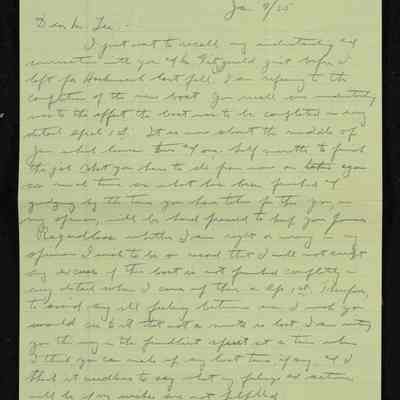 Jan 9/25
Dear Mr. Lee:-
I just want to recall my understanding and
conversation with you & Mr. Fitzgerald just before I
left for last fall. I am referring to the
completion of the new boat. You recall our understanding
was to the effect the boat was to be completed in every
detail April 1st. It is now about the middle of
Jan which leaves two & one half months to finish
the job. What you have to do from now on again
as much time as what has been finished &
judging by the time you have taken so far you, in
my opinion, will be hard pressed to keep your promise.
Regardless whether I am right or wrong in my
opinion I want to be on record that I will not accept
any excuses if this boat is not finished completely in
every detail when I come up there Ap. 1st. Therefore,
to avoid any ill feeling between us I wish you
would see to it that not a minute is lost. I am writing
you this way in the friendliest spirit at a time when
I think you can make up any lost time, if any, and I
think it needless to say what my feelings and actions
will be if my wishes are not fulfilled